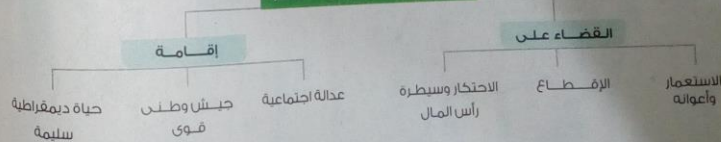 القضاء على
إقامة
الاستعمار
وأعوانه
الإقطاع
الاحتكار وسيطرة
رأس المال
عدالة اجتماعية
جيش وطنى
قوى
حياة ديمقراطية
سليمة